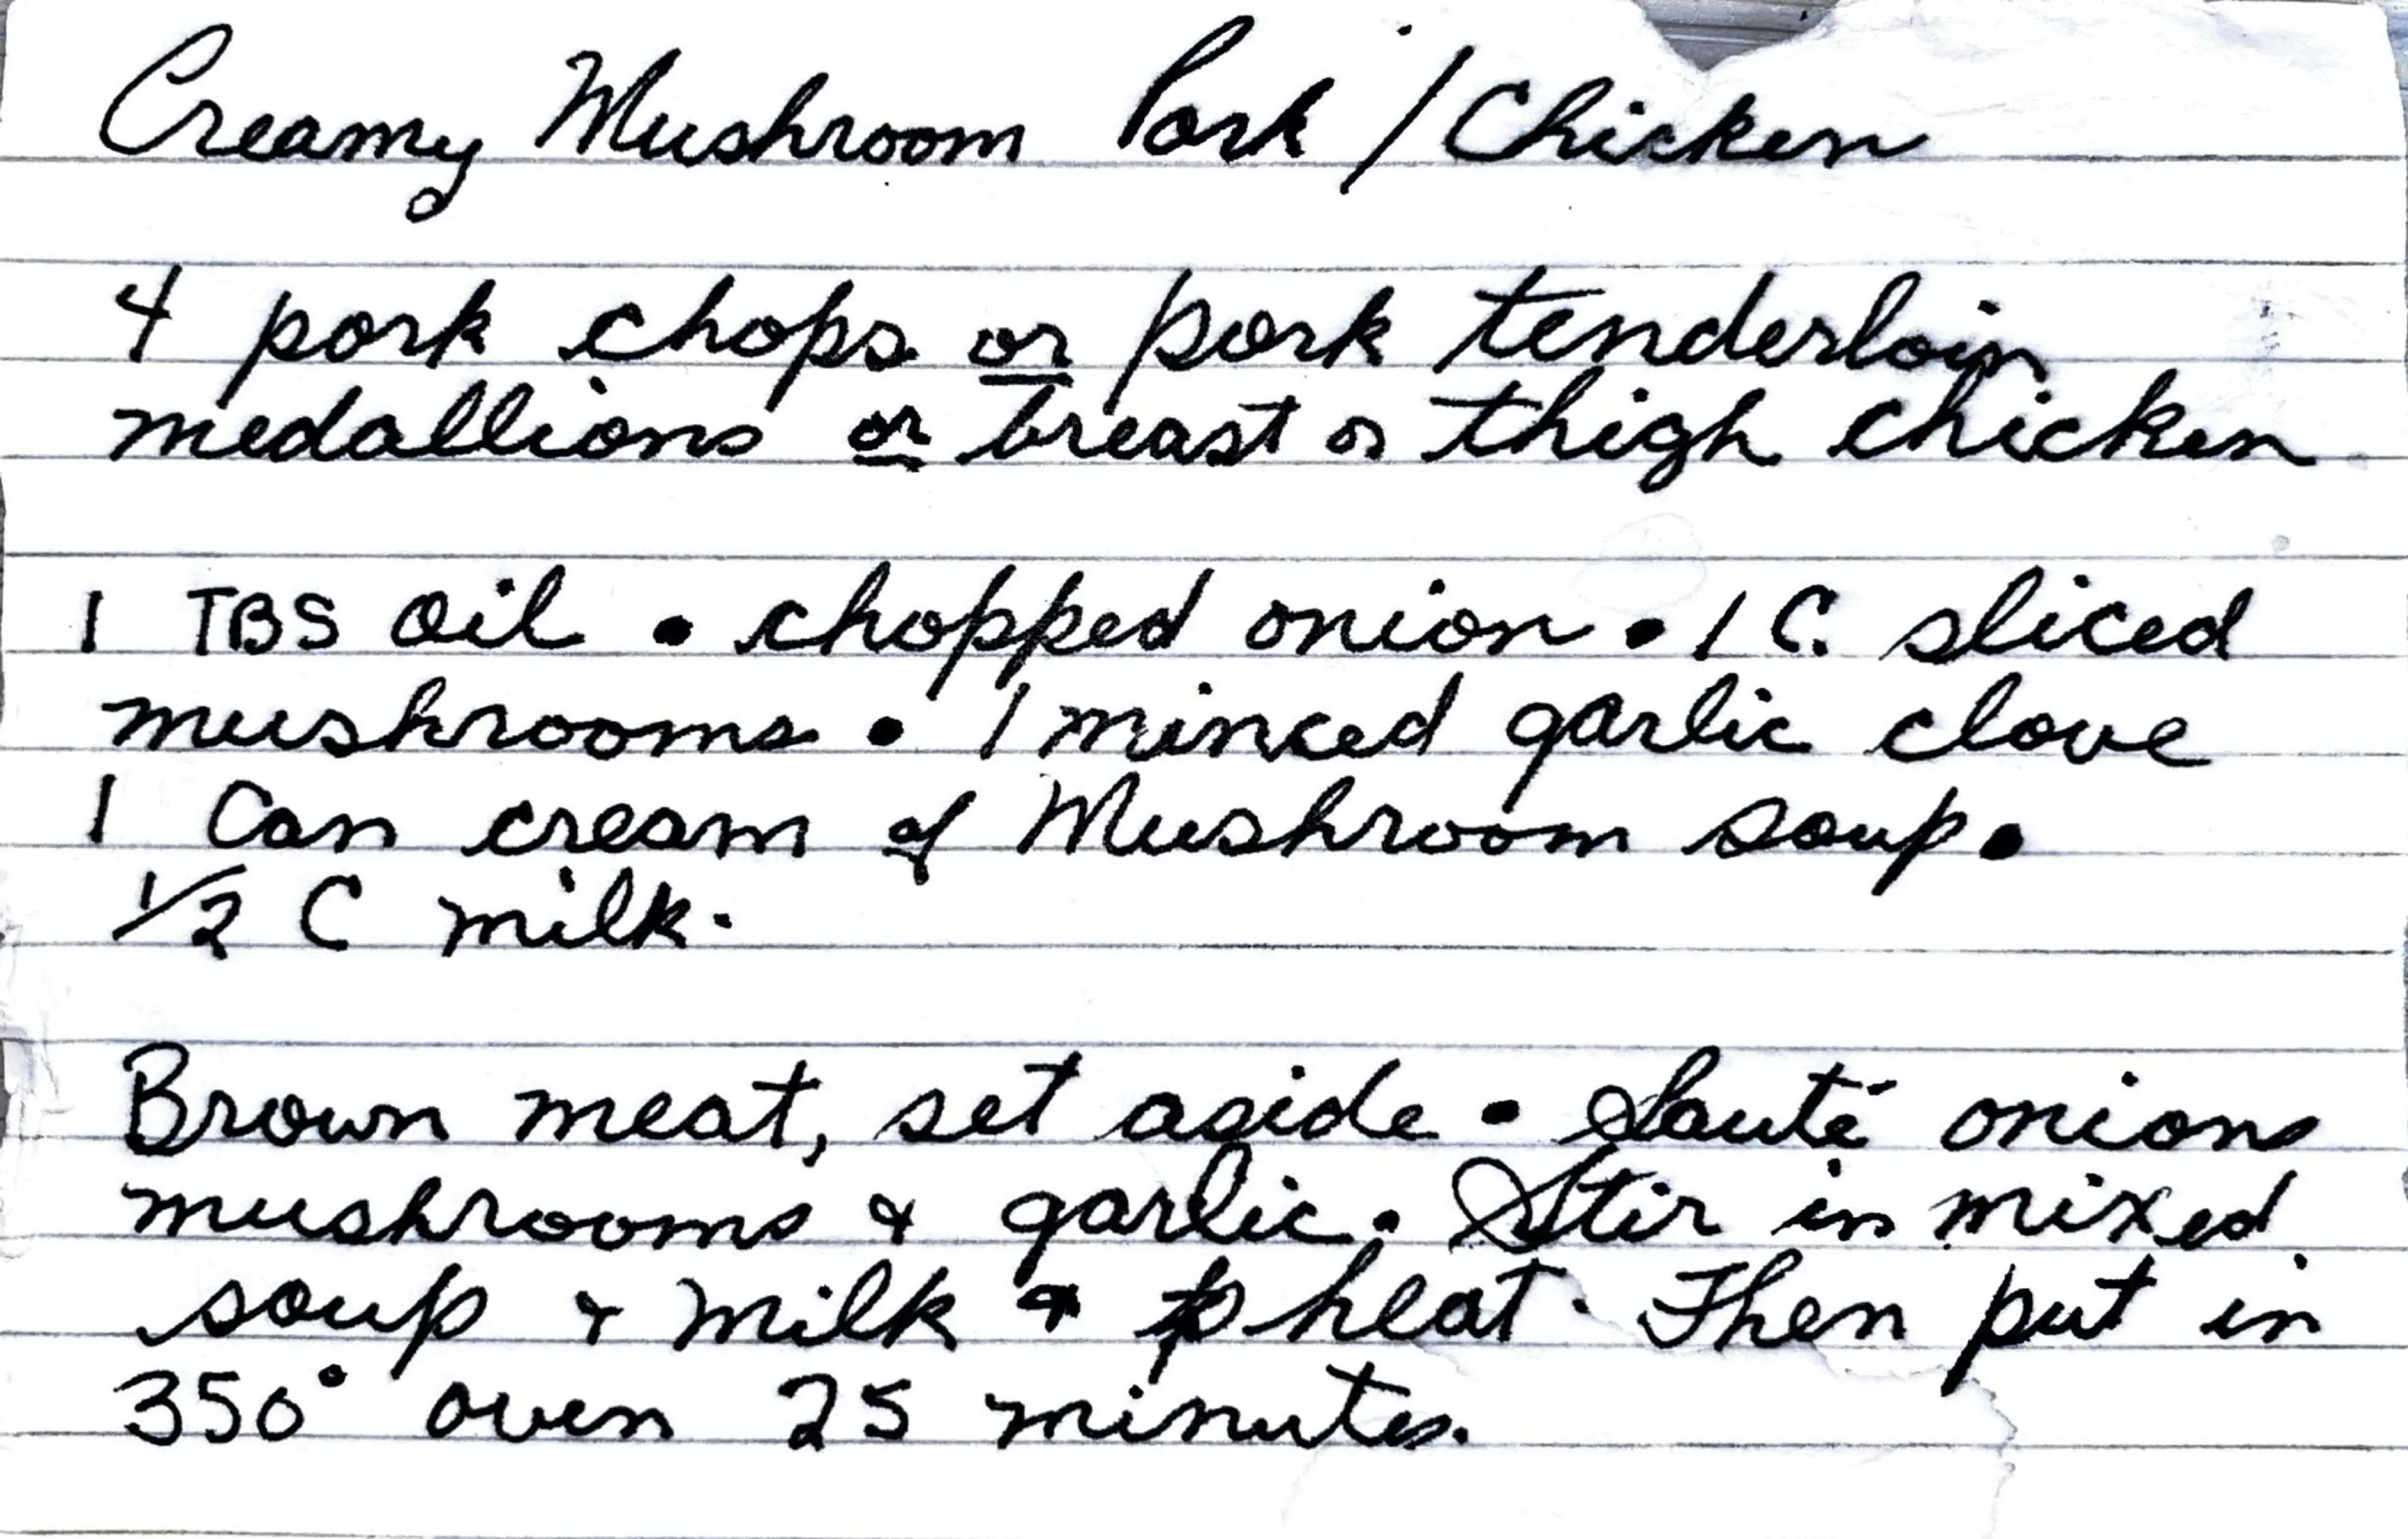 Creamy Mushroom Pork / Chicken
4 pork chops or pork tenderloin
medallions or breast or thigh chicken
1 TBS Oil • chopped onion • 1 C. sliced
mushrooms • 1 minced garlic clove
1 Can cream of Mushroom soup •
1/2 C milk.
Brown meat, set aside • Sauté onions
mushrooms & garlic. Stir in mixed
soup & milk & heat. Then put in
350° oven 25 minutes.